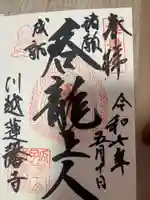 奉拝
令和七年
五月十日
祈願
呑龍上人
成就
川越蓮馨寺